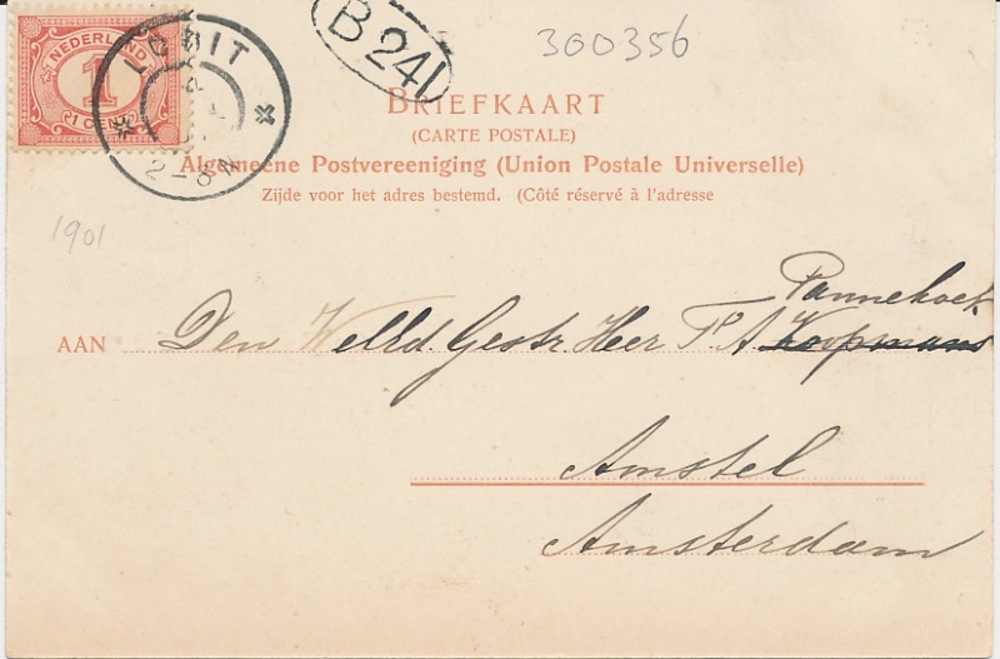 300356
B 241
NEDERLAND
1
1 CENT
LOBIT
2-8N
BRIEFKAART
(CARTE POSTALE)
Algemeene Postvereeniging (Union Postale Universelle)
Zijde voor het adres bestemd. (Côté réservé à l'adresse
1901
Pannekoek
AAN Den WelEd. Gestr. Heer A Koopmans
Amstel
Amsterdam